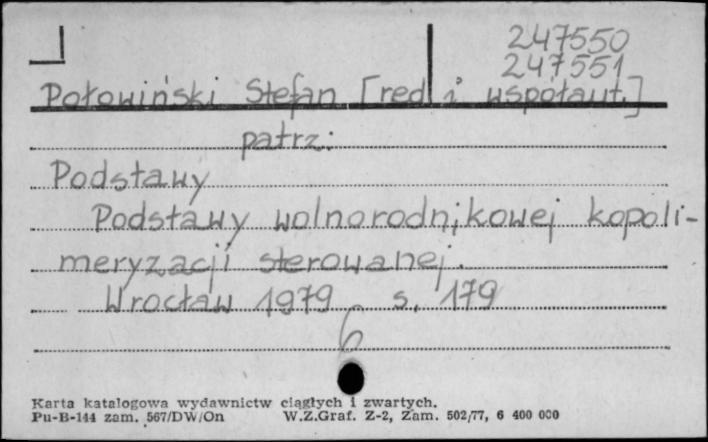 247550
247551
Połowiński Stefan [red. i współaut.]
patrz:
Podstawy
Podstawy wolnorodnikowej kopoli-
meryzacji sterowanej.
Wrocław 1979 s. 179
6
Karta katalogowa wydawnictw ciągłych i zwartych.
Pu-B-144 zam. 567/DW/On W.Z.Graf. Z-2, Zam. 502/77, 6 400 000